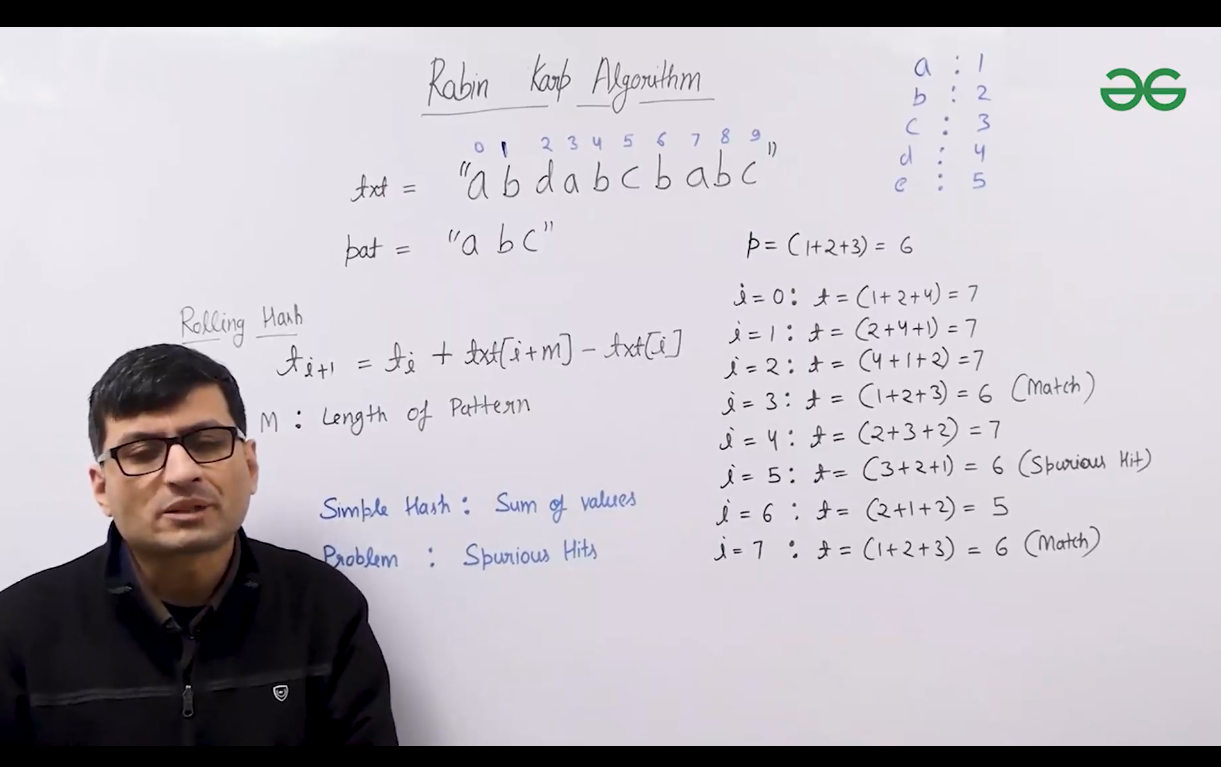 Rabin Karp Algorithm
0 1 2 3 4 5 6 7 8 9
txt = "a b d a b c b a b c"
pat = "a b c"
Rolling Hash
t i+1 = t i + txt[i+m] - txt[i]
M : Length of Pattern
Simple Hash : Sum of values
Problem : Spurious Hits
a : 1
b : 2
c : 3
d : 4
e : 5
p = (1+2+3) = 6
i = 0 : t = (1+2+4) = 7
i = 1 : t = (2+4+1) = 7
i = 2 : t = (4+1+2) = 7
i = 3 : t = (1+2+3) = 6 (Match)
i = 4 : t = (2+3+2) = 7
i = 5 : t = (3+2+1) = 6 (Spurious Hit)
i = 6 : t = (2+1+2) = 5
i = 7 : t = (1+2+3) = 6 (Match)